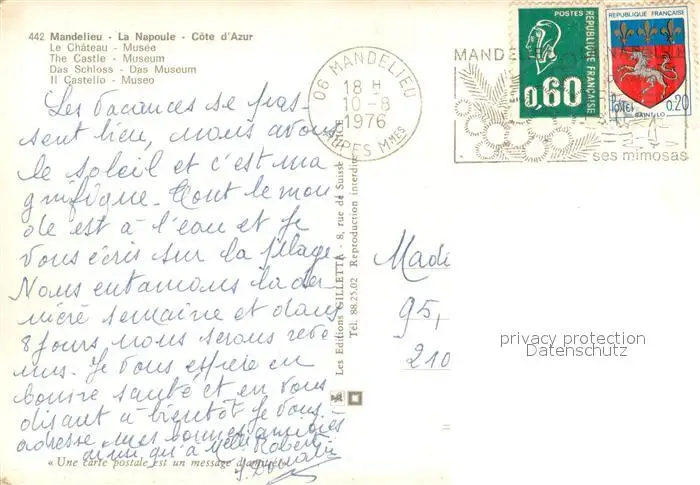 442 Mandelieu - La Napoule - Côte d'Azur
Le Château - Musée
The Castle - Museum
Das Schloss - Das Museum
Il Castello - Museo
Les Vacances se pas-
sent bien, nous avons
le soleil et c'est ma
gnifique. Tout le mon
de est à l'eau et je
vous écris sur la plage
Nous entamons la der
nière semaine et dans
8 jours nous serons reve
nus. Je vous espère en
bonne santé et en vous
disant à bientôt je vous
adresse mes bonnes amitiés
ainsi qu'à Melle Robert
« Une carte postale est un message d'amitié »
Les Editions GILLETTA - 8, rue de Suisse - NICE
Tél. 88.25.02 Reproduction interdite
06 MANDELIEU
18 H
10-8
1976
MANDE
ses mimosas
POSTES
REPUBLIQUE FRANÇAISE
0,60
REPUBLIQUE FRANÇAISE
Postes
0,20
SAINT-LO
Madi
95,
210
privacy protection
Datenschutz